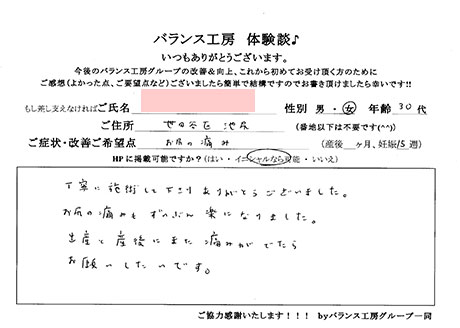 バランス工房 体験談♪
いつもありがとうございます。
今後のバランス工房グループの改善&向上、これから初めてお受け頂く方のために
ご感想(よかった点、ご要望点など)ございましたら簡単で結構ですのでお書き頂けましたら幸いです!!
もし差し支えなければご氏名 性別 男・女 年齢 30 代
ご住所 世田谷区池尻 (番地以下は不要です(^^))
ご症状・改善ご希望点 お尻の痛み (産後 ヶ月、妊娠15週)
HPに掲載可能ですか?(はい・イニシャルなら可能・いいえ)
丁寧に施術して下さりありがとうございました。
お尻の痛みもずいぶん楽になりました。
出産と産後にまた痛みがでたら
お願いしたいです。
ご協力感謝いたします!!! byバランス工房グループ一同